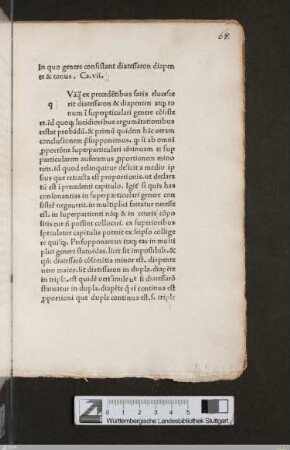 68.
In quo genere consistant diatessaron diapen
te & tonus. Ca.vii.
q
Uāq̄ ex precedētibus satis eluesce
rit diatessaron & diapenten atq; to
num ī superpticulari genere cōsiste
re. id quoq; lucidioribus argumētationibus
restat
& primū quidem hāc
conclusionem p̄supponemus. q si ab omni
ꝓportione superparticulari cōtinuam ei sup
particularem auferamus ꝓportionem mino
rem. id quod relinquitur
medio ip
sius que retracta est proportionis. ut declara
tū est ī precedenti capitulo. Igit si quis has
consonantias in superparticulari genere con
sistere negauerit. in multiplici
necesse
est. in superpartienti
& in ceteris
positis eum
possint collocri. ex superioribus
capitulis poterit ex seipso collige
re quisq;. Presupponamus
eas in multi
plici genere
sit impossibile. &
diatessarō cōsonātia minor est. diapente
uero maior. sit diatessaron in dupla. diapēte
in tripla. est quidē uerisimile ut si diatessarō
statuatur in dupla. diapēte q̄ ei continua est
ꝓportioni que duple continua est. s. triple
0 1 2 3 4 5
Württembergische Landesbibliothek Stuttgart